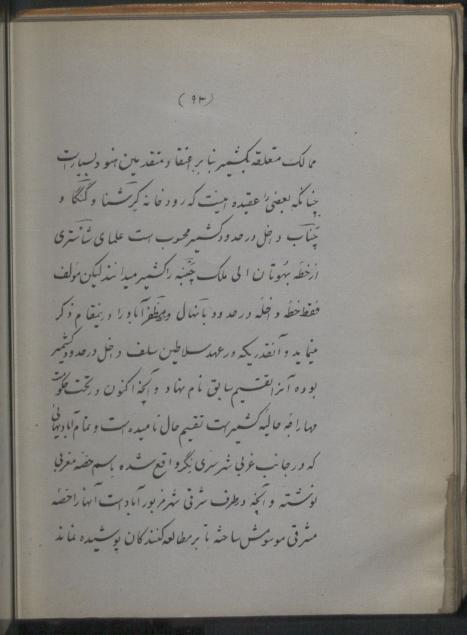 (۹۳)
ممالک متعلقه بکشمیر بنا بر اعتقاد متقدمین هنود بسیار است
چنانکه بعضی را عقیده اینست که رودخانه کرشنا و گنگا و
چناب داخل در حدود کشمیر محسوب است علمای شاستری
از خطه بهوتان الی ملک چنبه را کشمیر میدانند لیکن مولف
فقط خطه داخله در حدود بانهال و مظفرآباد را در ینمقام ذکر
مینماید و آنقدریکه در عهد سلاطین سلف داخل در حدود کشمیر
بوده آنرا تقسیم سابق نام نهاد و آنچه اکنون در تحت حکومت
مهاراجه حالیه کشمیر است تقسیم حال نامیده است و تمام آبادیهائی
که در جانب غربی شهر سری نگر واقع شده باسم حصه مغربی
نوشته و آنچه در طرف شرقی شهر مزبور آباد است آنها را حصه
مشرقی موسوم ساخته تا بر مطالعه کنندگان پوشیده نماند